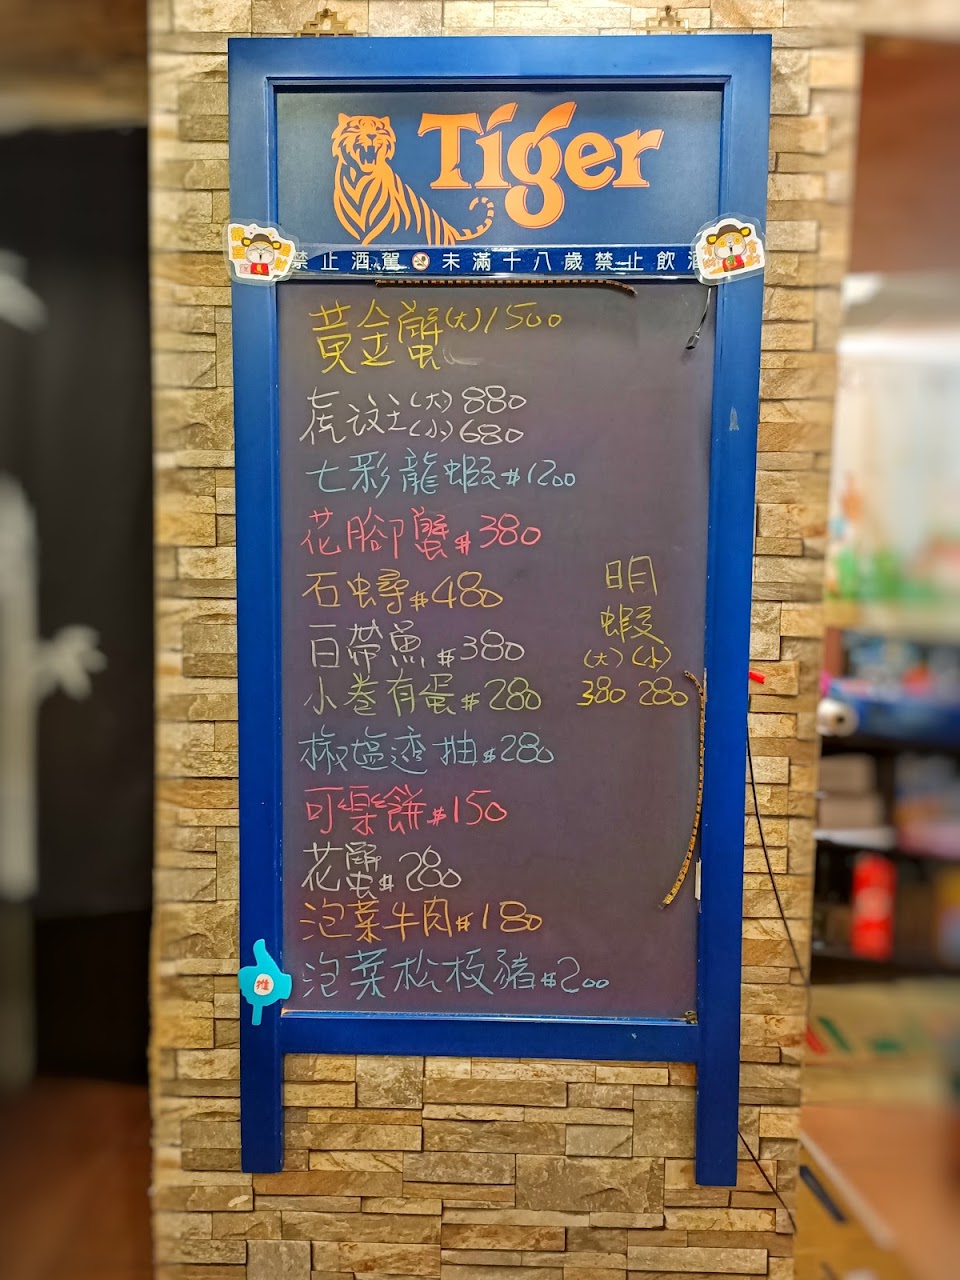 Tiger
禁止酒駕 未滿十八歲禁止飲酒
黃金蟹(大)1500
虎斑(大)880
(小)680
七彩龍蝦#1200
花腳蟹#380
石蟳#480
白帶魚#380
小卷有蛋#280
椒鹽透抽#280
可樂餅#150
花蟹#280
泡菜牛肉#180
泡菜松板豬#200
明
蝦
(大)(小)
380 280
推